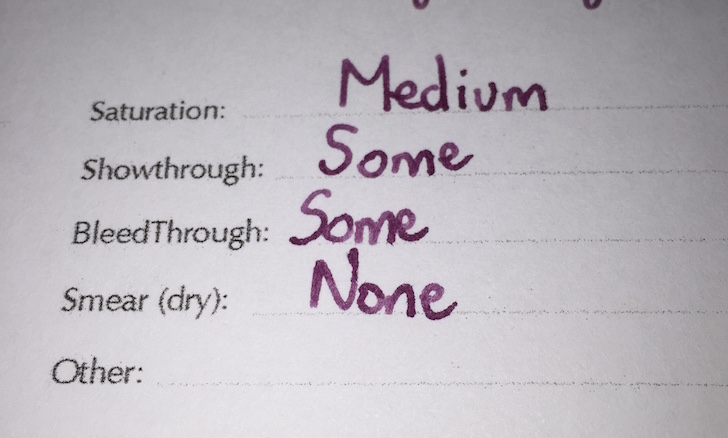 Saturation: Medium
Showthrough: Some
BleedThrough: Some
Smear (dry): None
Other: